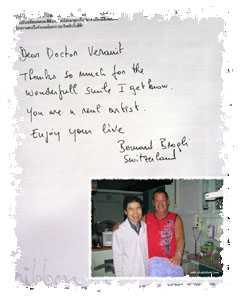 Dear Doctor Veranit
Thanks so much for the
wonderfull smile I get know.
You are a real artist.
Enjoy your live
Bernard Brogli
Switzerland